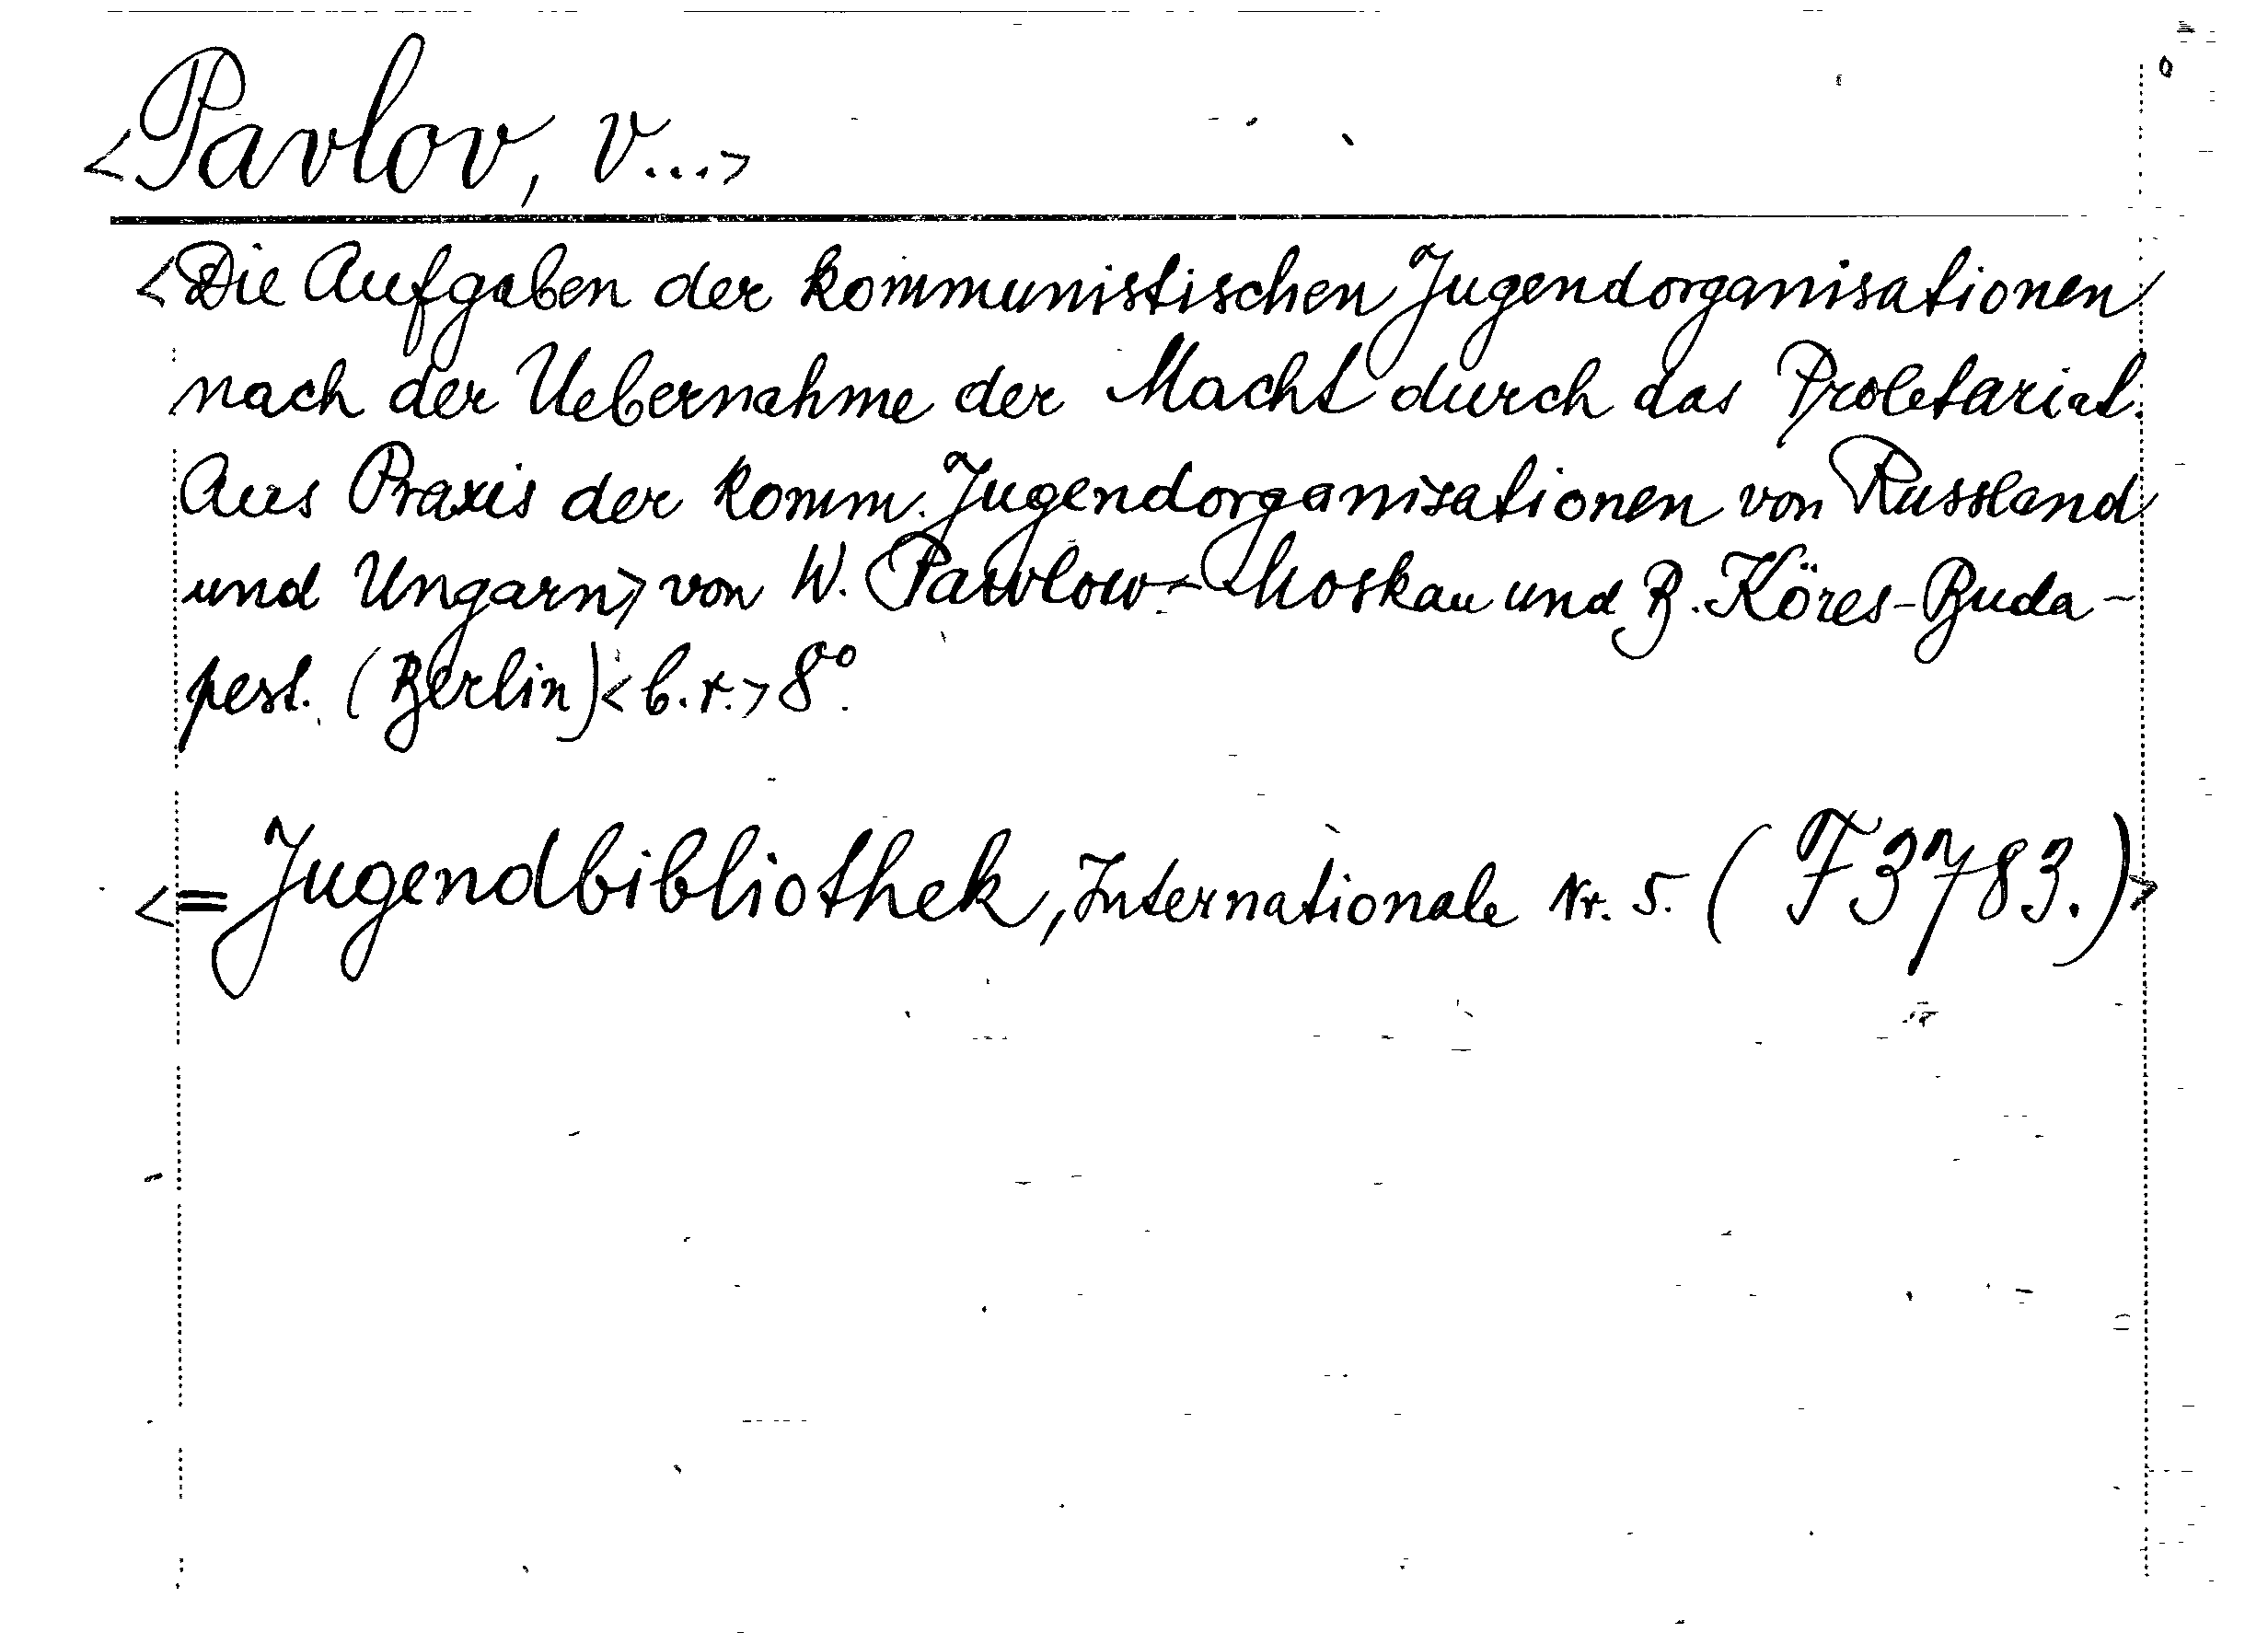 <Pavlov, V...>
<Die Aufgaben der kommunistischen Jugendorganisationen
nach der Uebernahme der Macht durch das Proletariat.
Aus Praxis der komm. Jugendorganisationen von Russland
und Ungarn> von W. Pawlow-Moskau und B. Köres-Buda-
pest. (Berlin) <b.r.> 8°.
<= Jugendbibliothek, Internationale Nr. 5. (F3783.)>